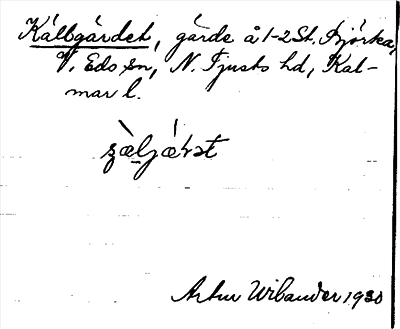 Källgärdet, gärde å 1-2 St. Björka,
V. Eds sn, N. Tjusts hd, Kal-
mar l.
Artur Wibander 1930